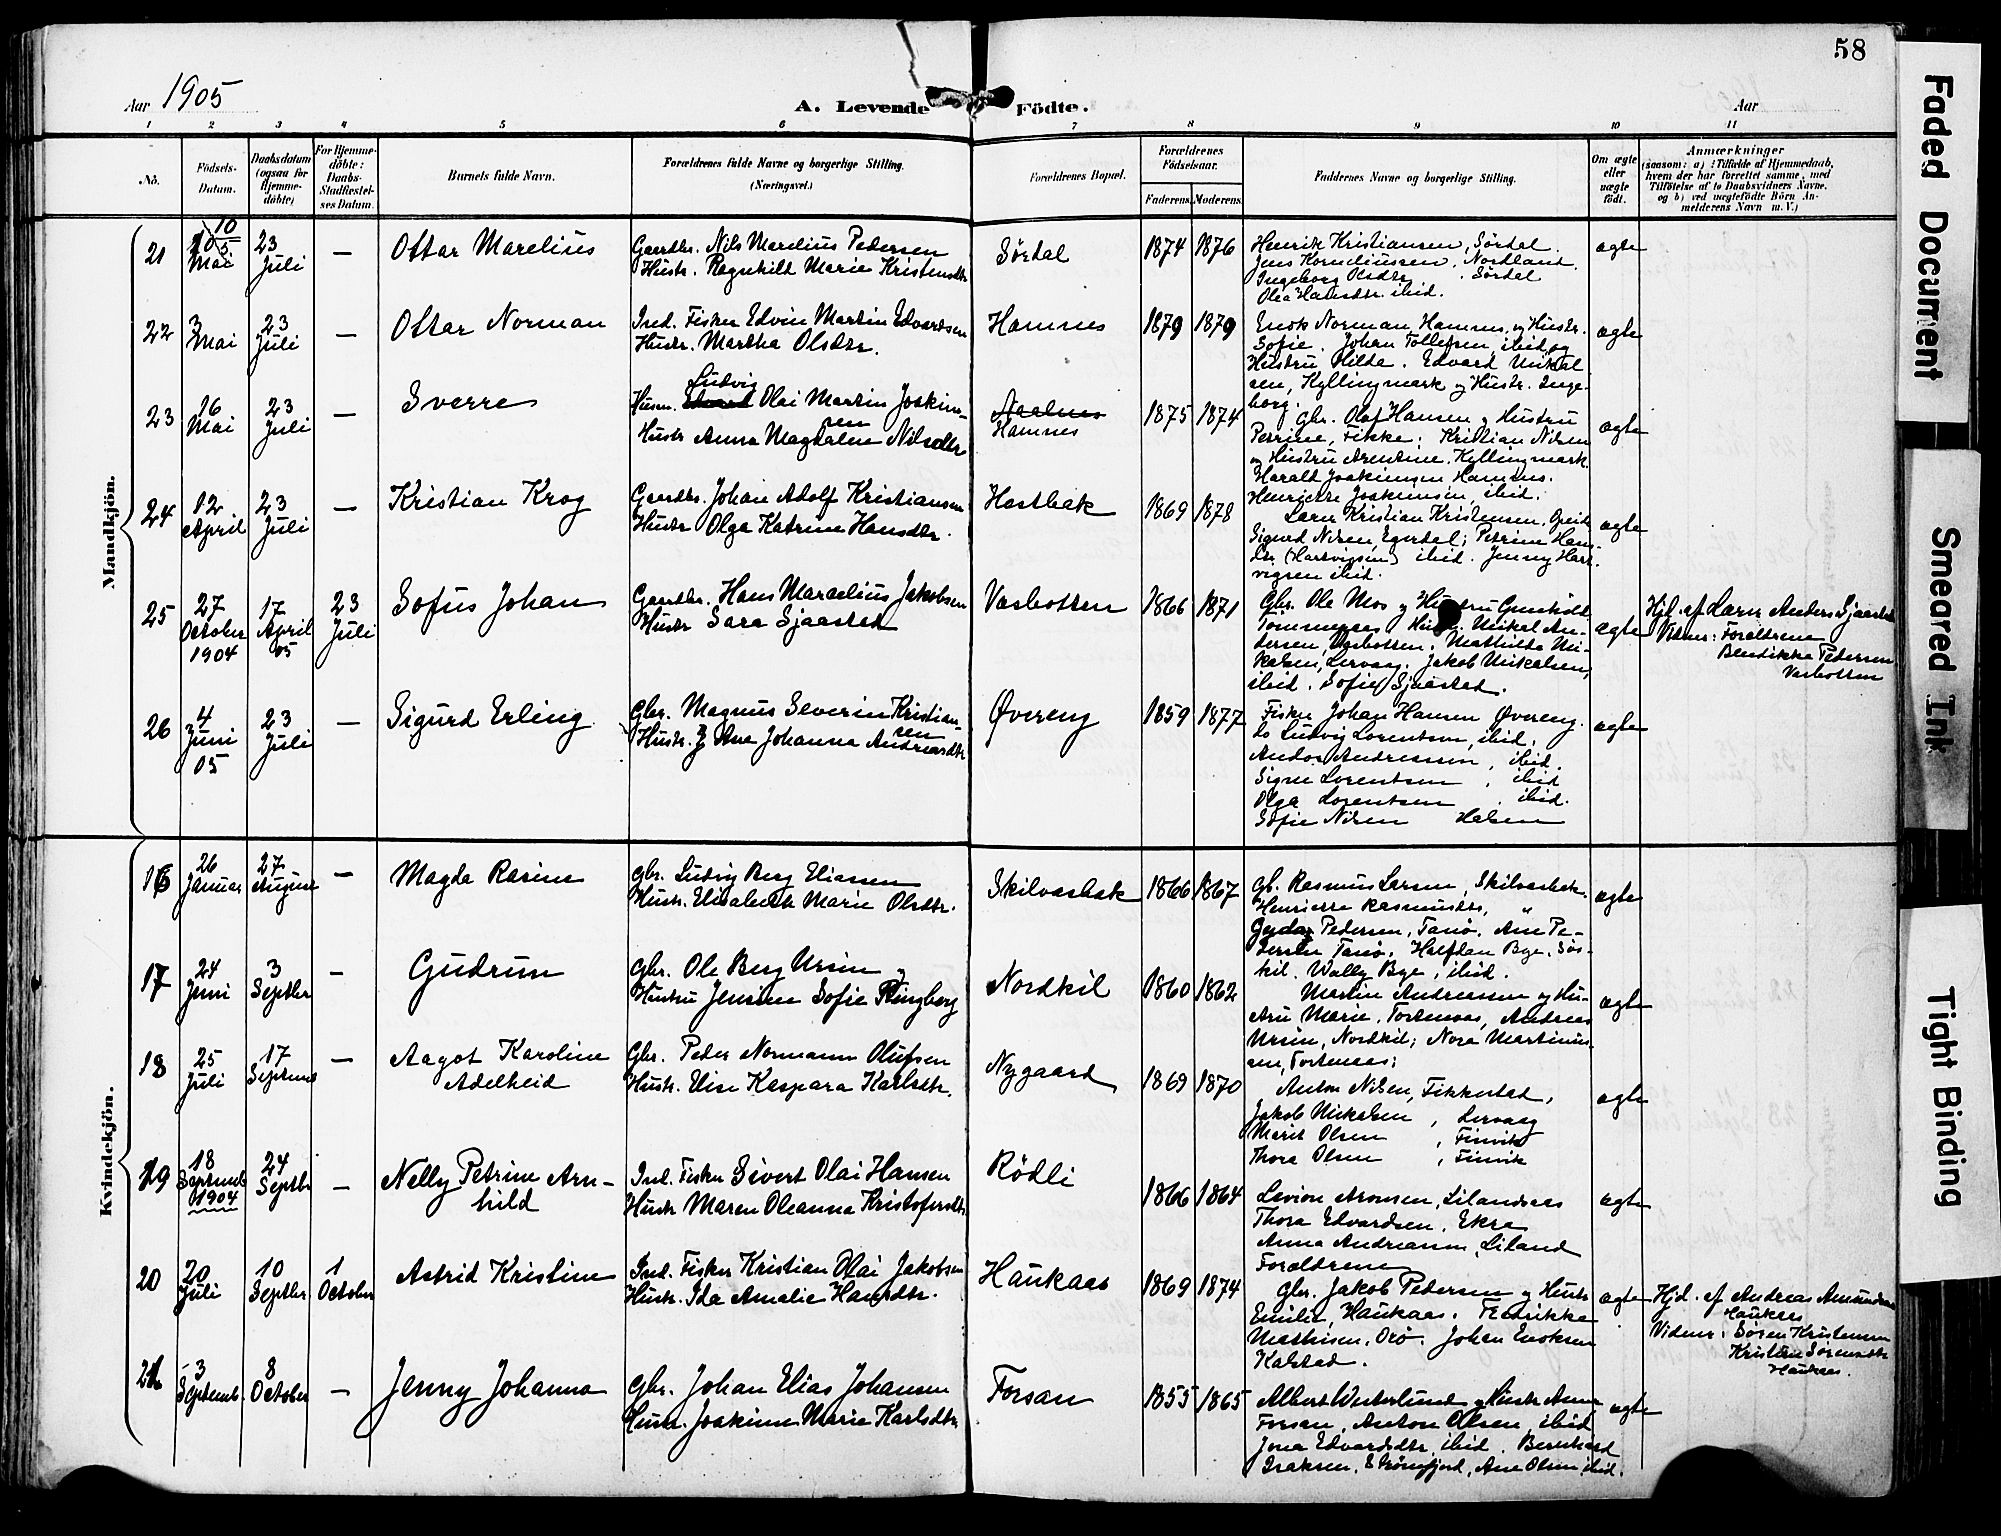 58
Aar 1905
A. Levende Födte.
Aar
1 2 3 4 5 6 7 8 9 10 11
No.
Födsels-
Datum.
Daabsdatum
(ogsaa for
Hjemme-
döbte)
For Hjemme-
döbte:
Daabs-
Stadfæstel-
ses Datum.
Barnets fulde Navn.
Forældrenes fulde Navne og borgerlige Stilling.
(Næringsvei.)
Forældrenes Bopæl.
Forældrenes
Födselsaar.
Faderens. Moderens.
Faddernes Navne og borgerlige Stilling.
Om ægte
eller
uægte
födt.
Anmærkninger
(saasom: a) i Tilfælde af Hjemmedaab,
hvem der har forrettet samme, med
Tilföielse af to Daabsvidners Navne,
og b) ved uægtefödte Börn An-
melderens Navn m. V.)
Mandkjön.
21
10/5
Mai
23
Juli
—
Ottar Marelius
Gaardbr. Nils Marelius Pedersen
Hustr. Ragnhild Marie Kristensdtr
Sørdal
1874 1876
Henrik Kristiansen, Sørdal.
Jens Korneliussen, Nordland.
Ingeborg Olsdtr. Sørdal
Olea Hansdtr. ibid.
ægte
22
3
Mai
23
Juli
—
Ottar Norman
Ind. Fisker Edvin Martin Edvardsen
Hustr. Martha Olsdtr.
Hamnes
1879 1879
Enok Norman, Hamnes, og Hustr.
Sofie. Johan Tollefsen, ibid, og
Hustru Hilda. Edvard Mikal
sen, Kyllingmark og Hustr. Inge-
borg.
ægte
23
16
Mai
23
Juli
—
Sverre
Ludvig
Husm. Edvard Olai Martin Joakim-
sen
Hustr Anna Magdalene Nilsdtr
Hamnes
1875 1874
Gbr. Olaf Hansen og Hustru
Perrine, Fikke; Kristian Nilsen
og Hustru Arentine, Kyllingmark.
Harald Joakimsen Hamnes.
Henriette Joakimsen, ibid.
ægte
24
12
April
23
Juli
—
Kristian Krog
Gaardbr. Johan Adolf Kristiansen
Hustr Olga Katrine Hansdtr.
Hostbak
1869 1878
Lærer Kristian Kristensen,
Sigurd Nilsen Egerdal; Petrine Hans-
dtr. (Hartvigsen) ibid. Jenny Hart
vigsen ibid.
ægte
25
27
October
1904
17
April
05
23
Juli
Sofus Johan
Gaardbr. Hans Marcelius Jakobsen
Hustr Sara Sjaastad
Vasbotten
1866 1871
Gbr. Ole Mos og Hustru Gunhild
Tømmeraas Mikal An-
dersen, Vasbotten. Mathilda Mi-
kalsen, Lervaag. Jakob Mikalsen,
ibid. Sofie Sjaastad.
ægte
Hjd. af Lærer Anders Sjaastad
Vidner: Forældrene
Bendikke Pedersen
Vasbotten
26
4
Juni
05
23
Juli
—
Sigurd Erling
Gbr. Magnus Severin Kristian-
sen
Hustr. Ane Johanna Andreasdtr
Øvereng
1859 1877
Fisker Johan Hansen Øvereng.
do Ludvig Lorentsen, ibid.
Andor Andreassen, ibid.
Signe Lorentsen, ibid
Olga Lorentsen, ibid.
Sofie Nilsen Halsen
ægte
Kvindekjön.
16
26
Januar
27
August
—
Magda Rasine
Gbr. Ludvig Berg Eliassen
Hustr. Elisabeth Marie Olsdtr.
Skilvasbak
1866 1867
Gb. Rasmus Larsen, Skilvasbak.
Henriette Rasmusdtr, "
Gerda Pedersen, Tanø. Ane Pe-
dersen Tanø. Halfdan Bye, Sós-
kil. Wally Bye, ibid.
ægte
17
24
Juni
3
Septbr
—
Gudrun
Gbr. Ole Berg Ursin og
Hustru Jensine Sofie Ringberg
Nordkil
1860 1862
Martin Andreassen og Hu-
stru Marie, Tortenaas, Andreas
Ursin, Nordkil; Nora Martinus-
sen, Tortenaas;
ægte
18
25
Juli
17
Septemb
—
Aagot Karoline
Adelheid
Gbr. Peder Normann Olufsen
Hustr. Elise Kaspara Karlsdtr.
Nygaard
1869 1870
Anton Nilsen, Fikkestad,
Jakob Mikalsen, Lervaag
Marit Olsen, Finvik
Thora Olsen, Finvik
ægte
19
18
Septemb
1904
24
Septbr
—
Nelly Petrine Arn-
hild
Ind. Fisker Sivert Olai Hansen
Hustr Maren Oleanna Kristofersdtr
Rödli
1866 1864
Levion Aronsen, Lilandsaas
Thora Edvardsen, Ekra
Anna Andreassen, Liland
Forældrene
ægte
20
20
Juli
10
Septbr
1
October
Astrid Kristine
Ind. Fisker Kristian Olai Jakobsen
Hustr. Ida Amalie Hansdtr.
Haukaas
1869 1874
Gbr. Jakob Pedersen og Hustr
Emilie, Haukaas. Fredrikke
Mathisen, Orø. Johan Enoksen
Kalstad.
ægte
Hjd. af Andreas Amundsen
Haukaas
Vidner: Sören Kristensen
Kristine Sörensdtr
Haukaas.
21
3
Septemb.
8
October
—
Jenny Johanna
Gbr. Johan Elias Johansen
Hustr. Joakime Marie Karlsdtr
Forsan
1855 1865
Albert Westerlund og Hustr Anna
Forsan, Anton Olsen, ibid
Jona Edvardsdtr, ibid. Bernhard
Isaksen, Strömfjord, Ane Olsen, ibid.
ægte
Faded Document
Smeared Ink
Tight Binding